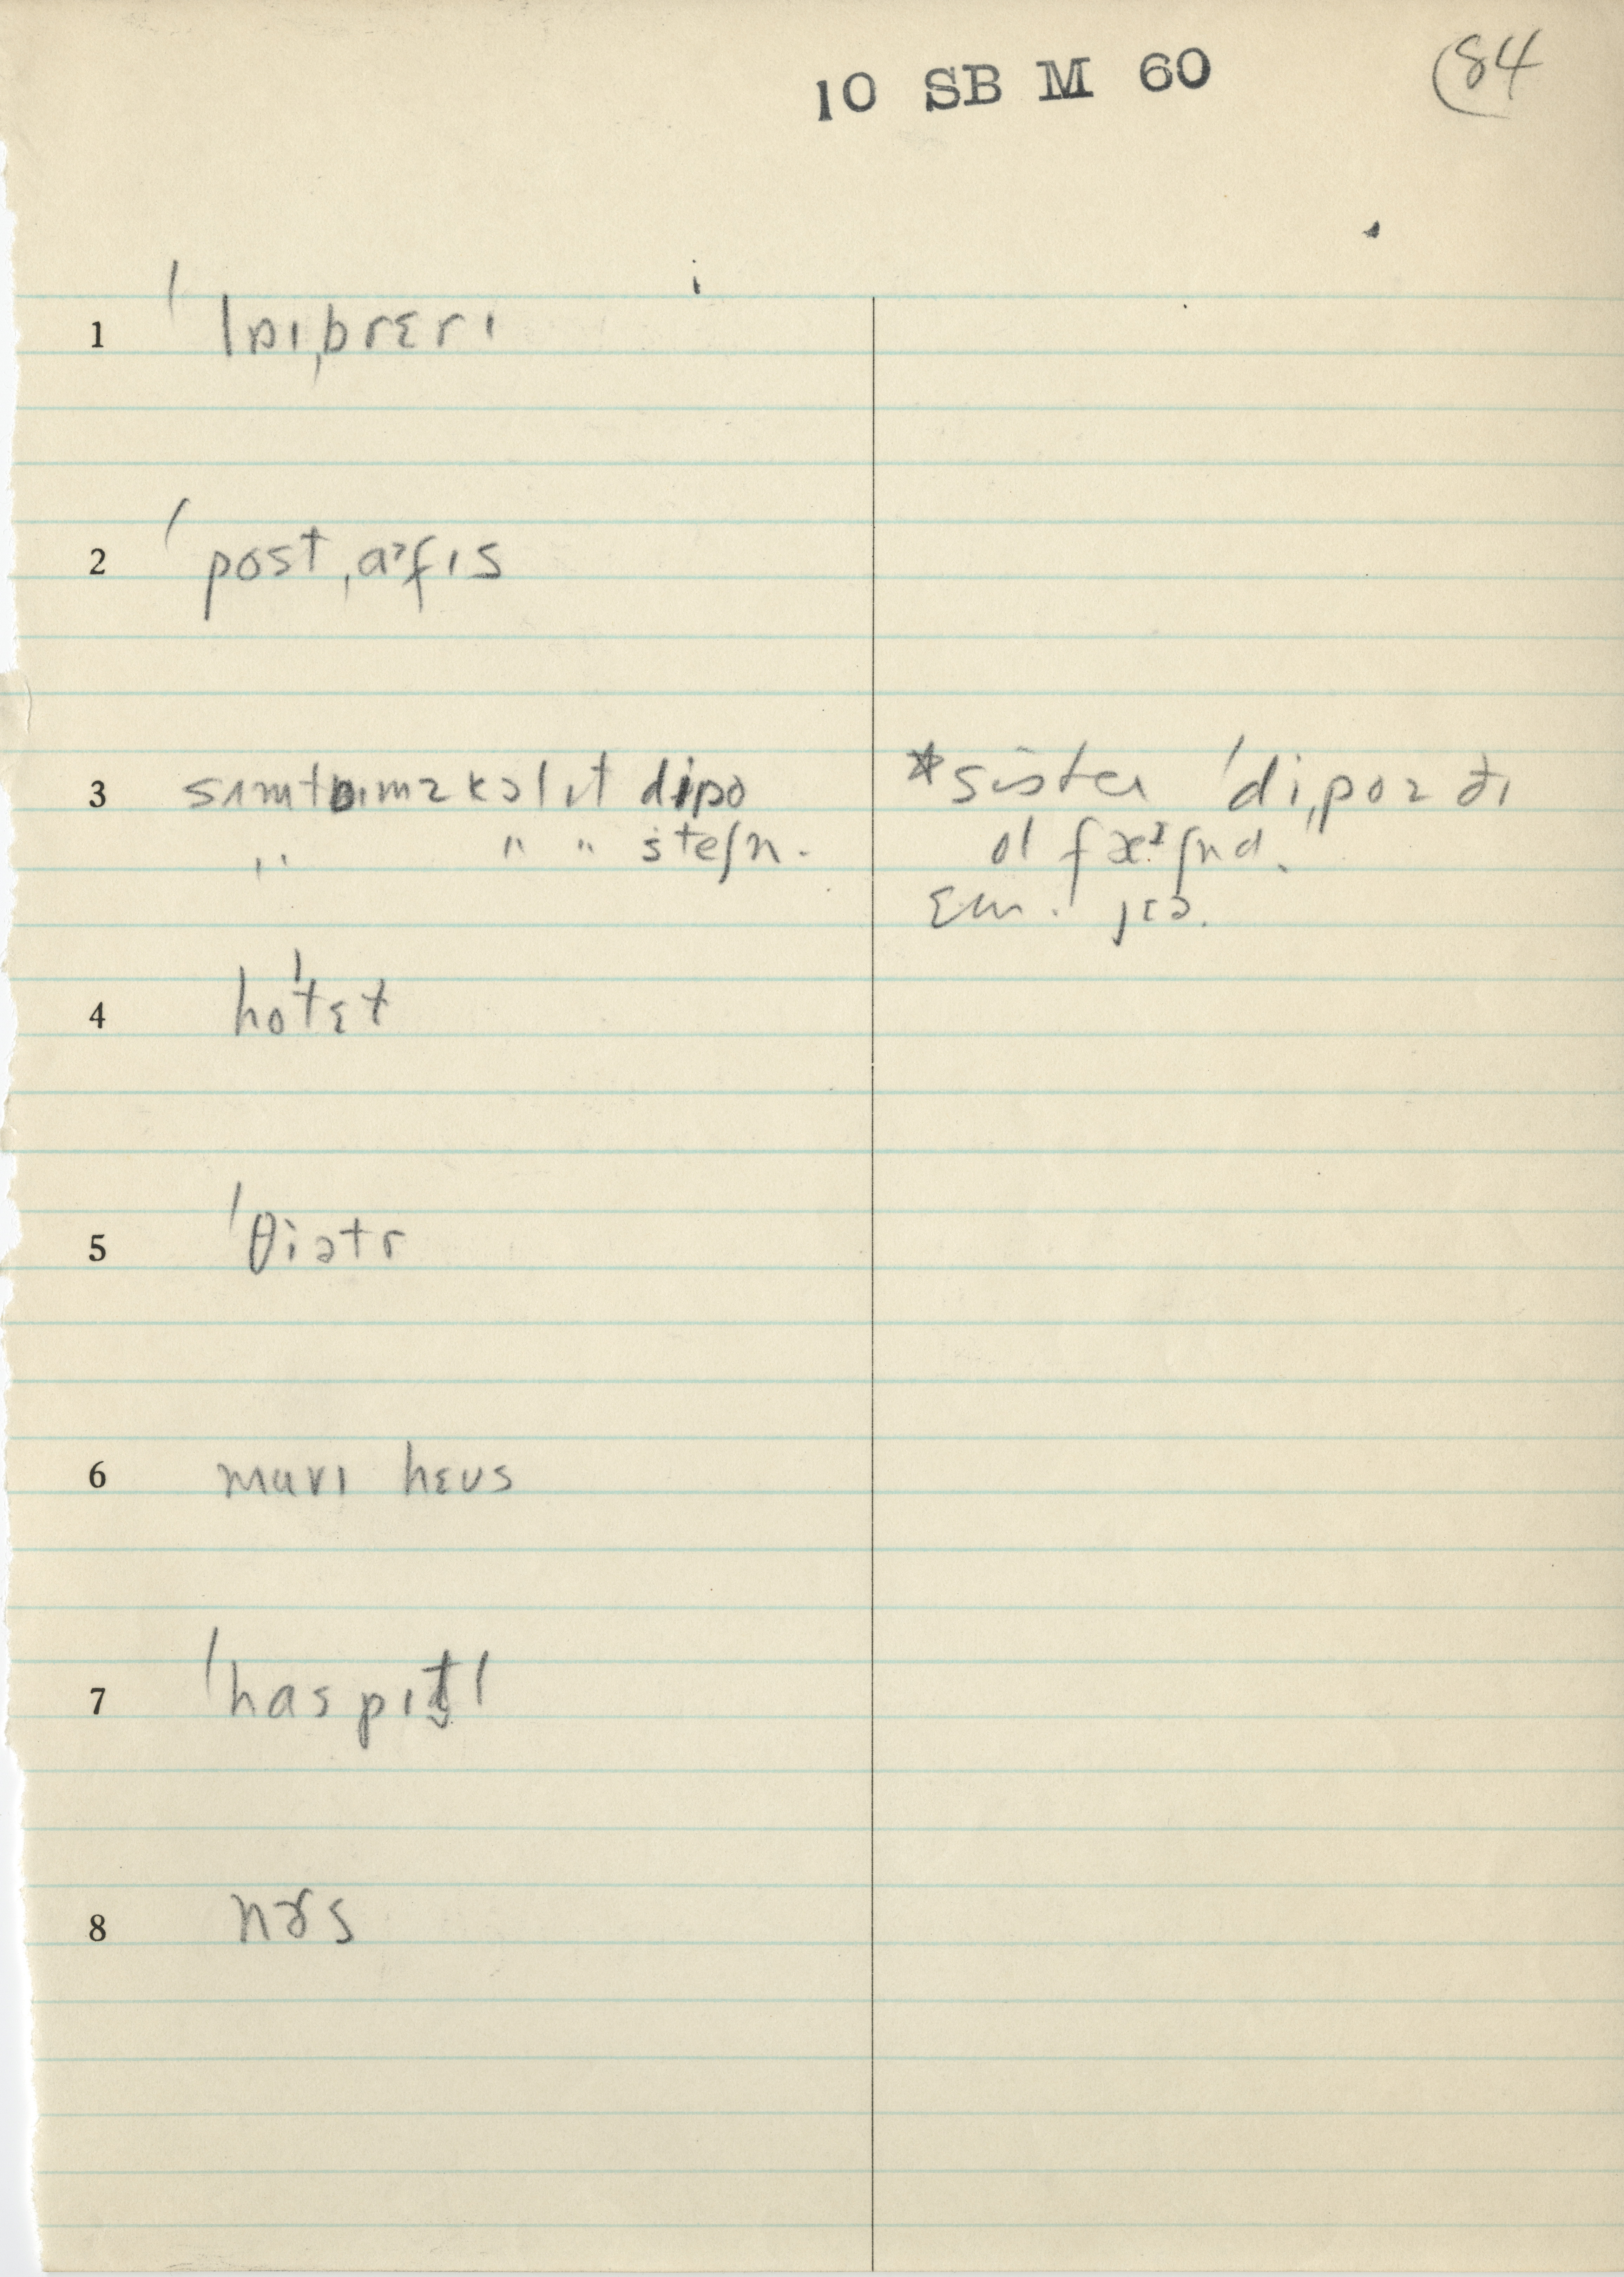 10 SB M 60
84
1 ˈlɒɪˌbrɛrɪ
2 ˈpostˌaᵊfɪs
3 sʌmtɒɪmz kɔl ɪt dipo
" " " steʃn.
*sister ˈdiˌpoz ðɪ
ol fæᶦʃnd.
4 hoˈtɛɫ
5 ˈθiətr
6 muvɪ hɛus
7 ˈhaspɪt̬l
8 nɝs